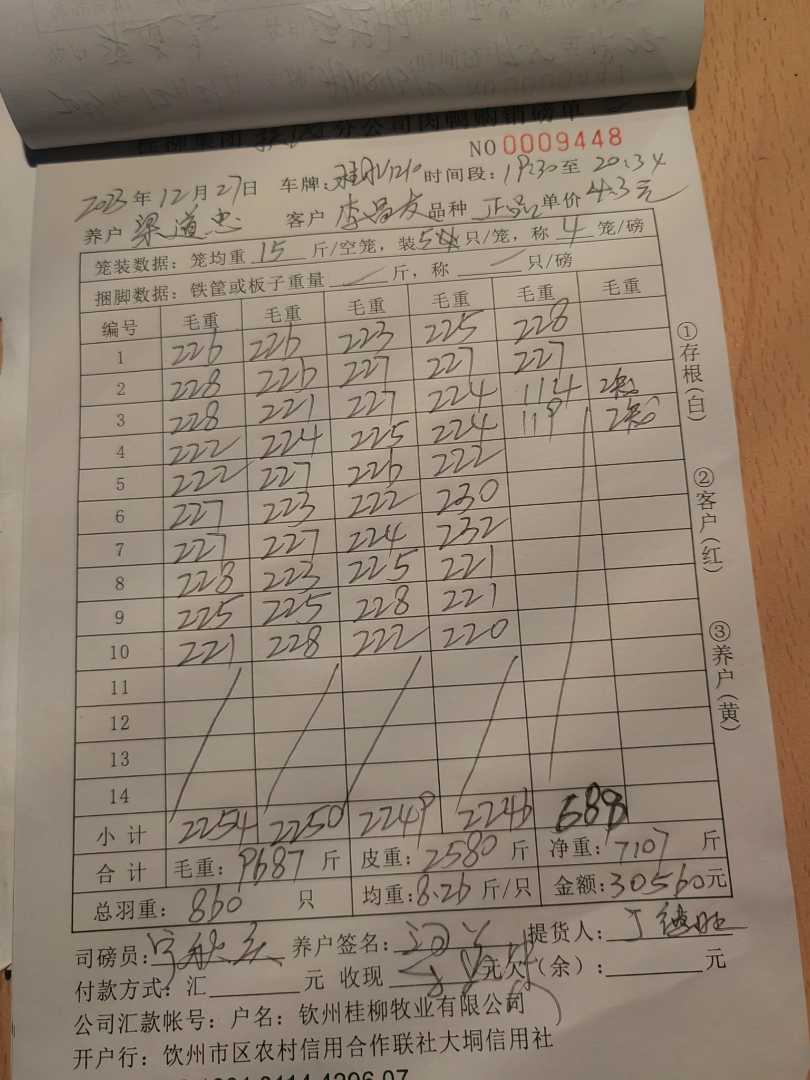 分公司肉鸭购销磅单
NO 0009448
2023年12月27日 车牌: 时间段:19:30至20:34
养户 梁道忠 客户 李昌友 品种 正品 单价4.3元
笼装数据:笼均重 15 斤/空笼,装5只/笼,称 4 笼/磅
捆脚数据:铁筐或板子重量 斤,称 只/磅
编号 毛重 毛重 毛重 毛重 毛重 毛重
1 226 226 223 225 228
2 228 226 227 227 227
3 228 221 227 224 114 2笼
4 222 224 225 224 119 2笼
5 222 227 226 222
6 227 223 222 230
7 227 227 224 232
8 228 223 225 221
9 225 225 228 221
10 221 228 222 220
11
12
13
14
小计 2254 2250 2249 2246 688
合计 毛重:9687斤 皮重:2580斤 净重:7107斤
总羽重:860只 均重:8.26斤/只 金额:30560元
司磅员: 养户签名: 提货人:
付款方式:汇 元 收现 元欠(余): 元
公司汇款帐号:户名:钦州桂柳牧业有限公司
开户行:钦州市区农村信用合作联社大垌信用社
①存根(白)
②客户(红)
③养户(黄)